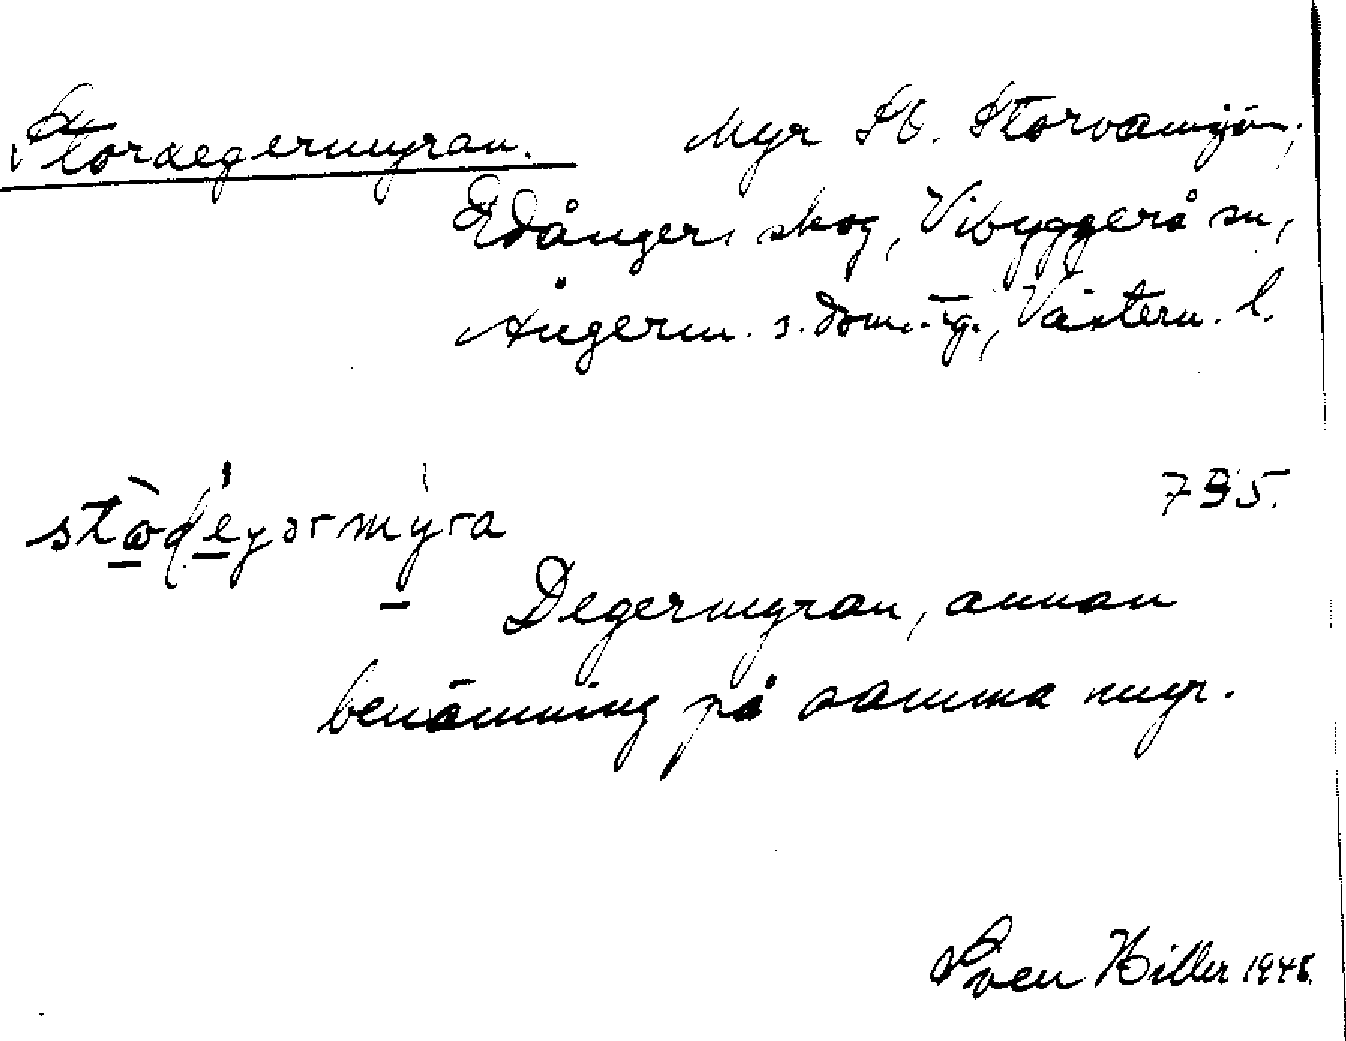 Stordegermyran. Myr SO. Storvamsjön,
Edånger skog, Vibyggerå sn,
Ångerm. s. dom.-sg., Västern. l.
795.
stœ̀dég̣ərmỳra
Degermyran, annan
benämning på samma myr.
Sven Hiller 1948.